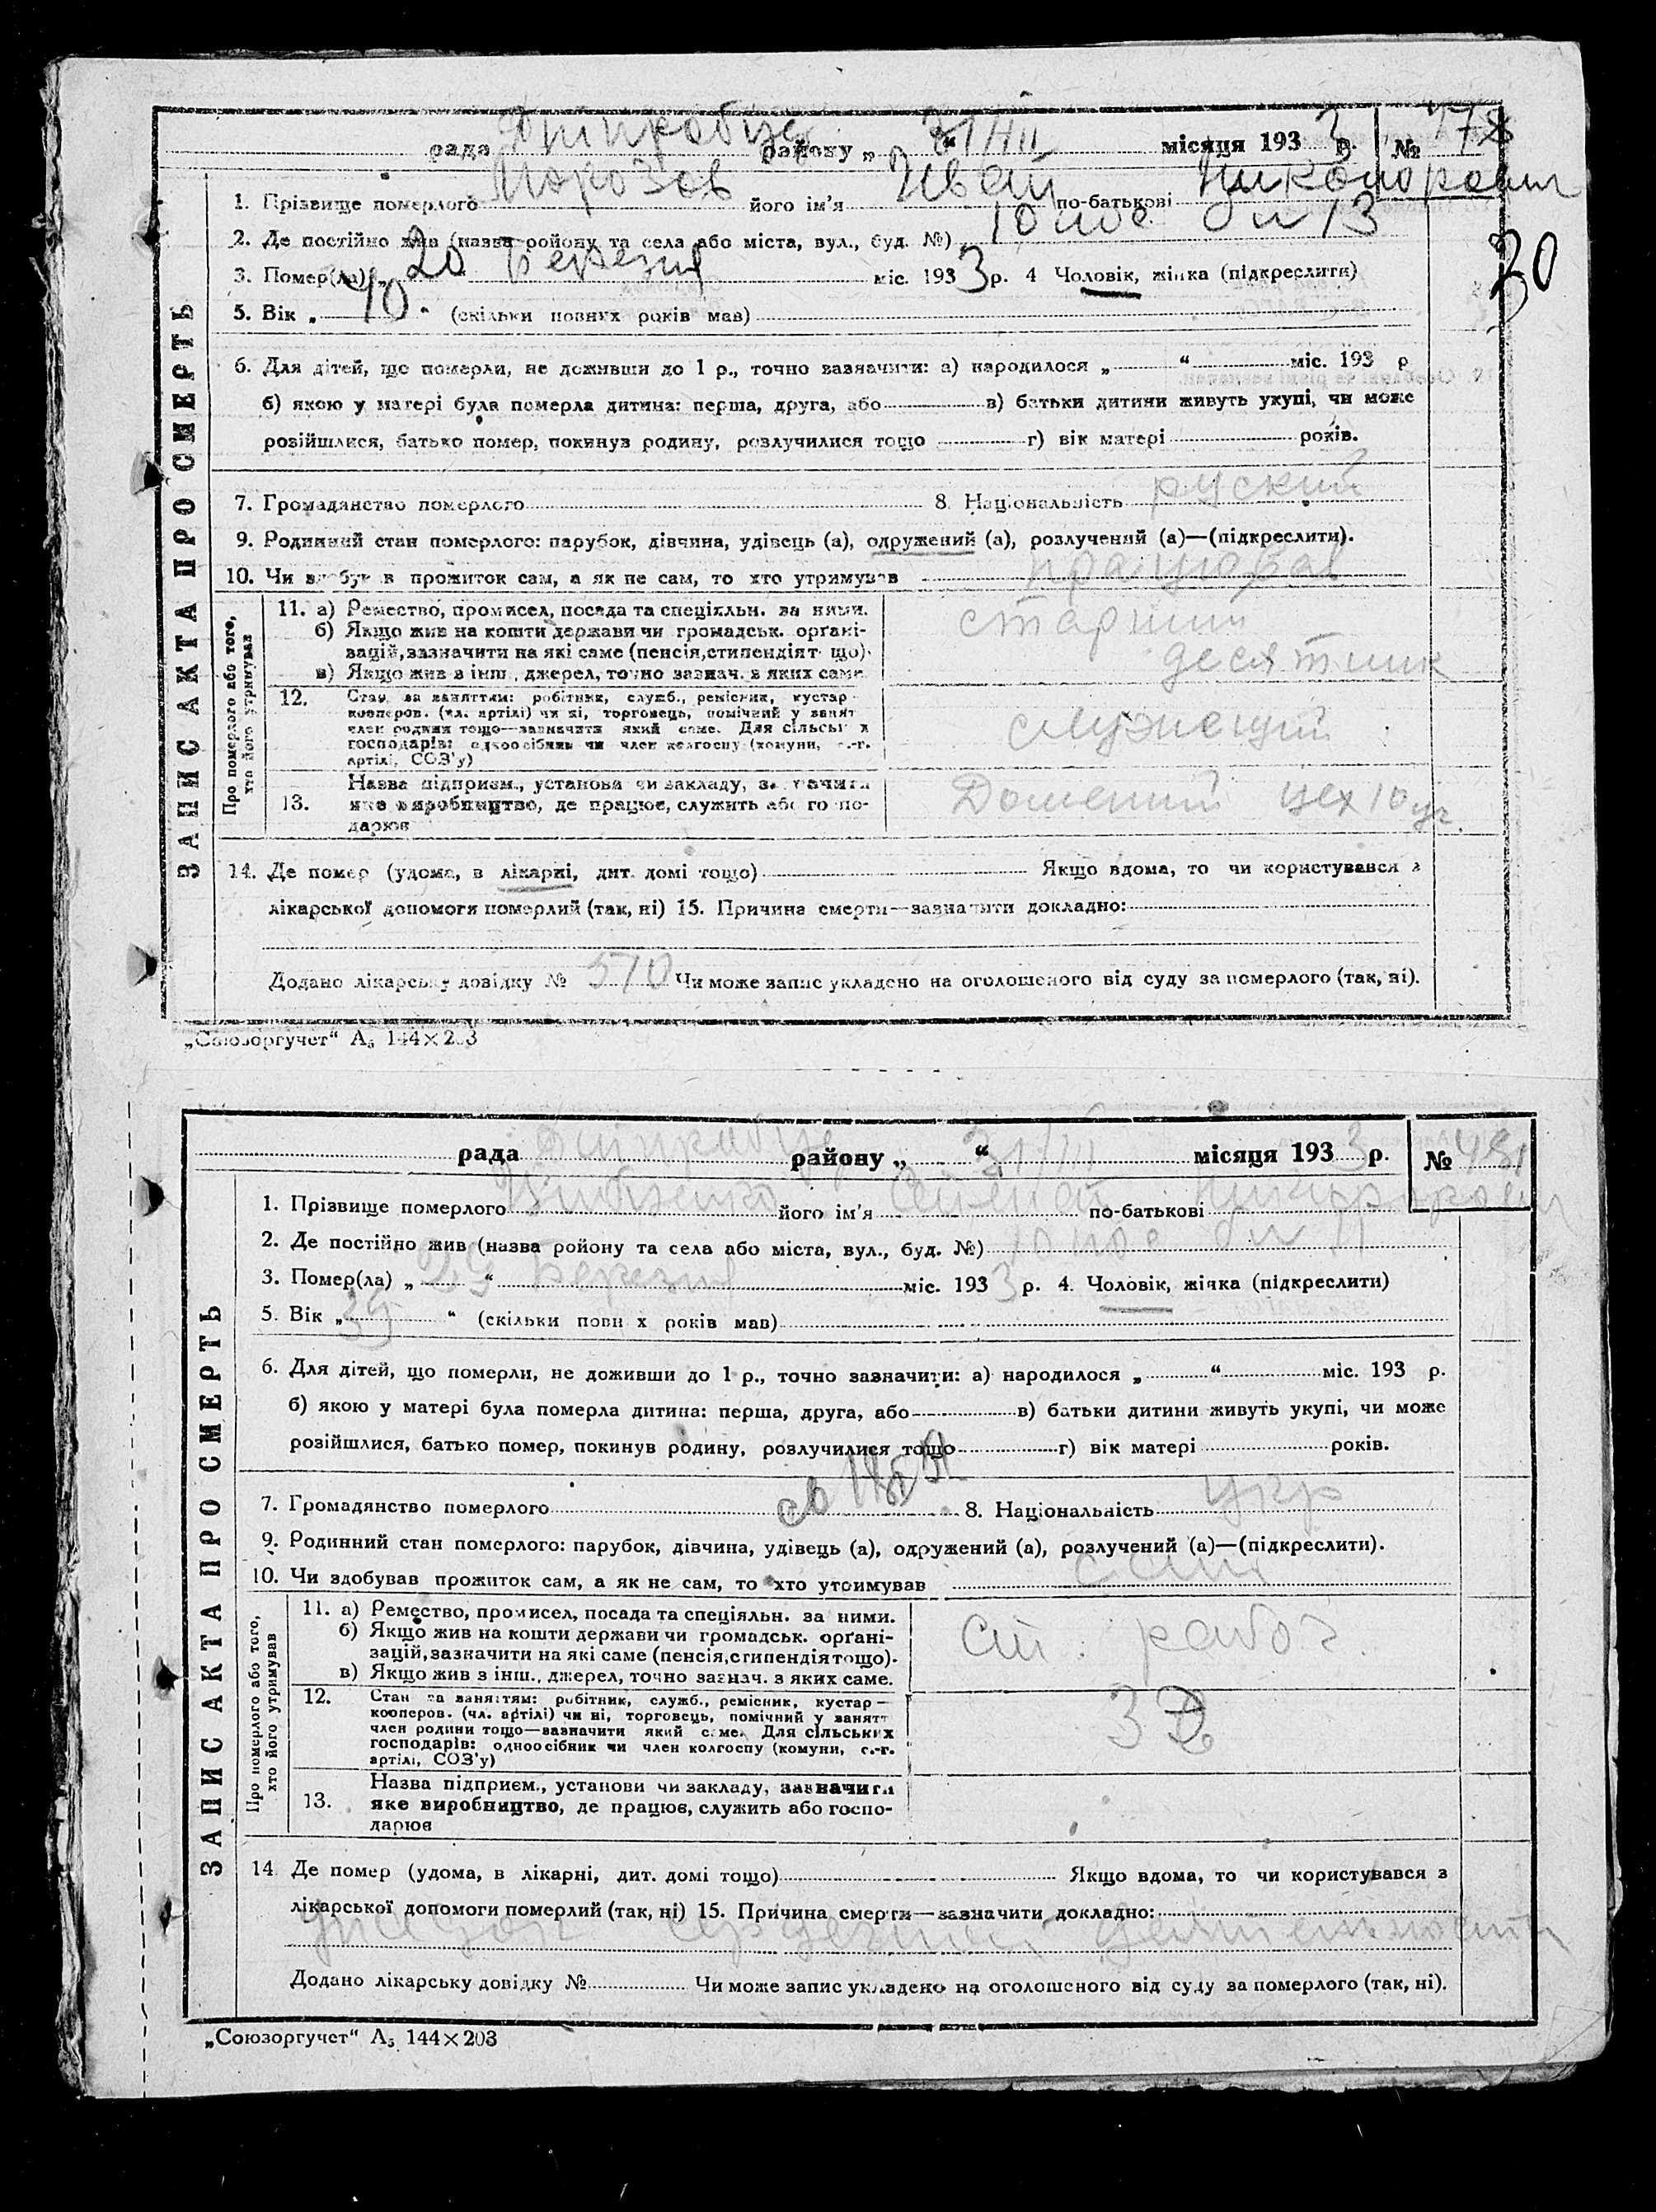 рада району „ 31/III “ місяця 1933 р. № 478
1. Прізвище померлого Морозов його ім'я Иван по-батькові Никонорович
2. Де постійно жив (назва району та села або міста, вул., буд. №) 10 пос бл 13
3. Помер(ла) „ 20 березня міс. 1933 р. 4 Чоловік, жінка (підкреслити)
30
5. Вік „ 40 . (скільки повних років мав)
6. Для дітей, що померли, не доживши до 1 р., точно зазначити: а) народилося „ “ міс. 193 р
б) якою у матері була померла дитина: перша, друга, або в) батьки дитини живуть укупі, чи може
розійшлися, батько помер, покинув родину, розлучилися тощо г) вік матері років.
7. Громадянство померлого 8. Національність руский
9. Родинний стан померлого: парубок, дівчина, удівець (а), одружений (а), розлучений (а)—(підкреслити).
10. Чи здобував прожиток сам, а як не сам, то хто утримував працював
ЗАПИС АКТА ПРО СМЕРТЬ
Про померлого або того,
хто його утримував
11. а) Ремество, промисел, посада та спеціяльн. за ними.
б) Якщо жив на кошти держави чи громадськ. органі-
зацій, зазначити на які саме (пенсія, стипендія т що).
в) Якщо жив з інш., джерел, точно зазнач. з яких саме.
старший
десятник
12. Стан за заняттям: робітник, служб., ремісник, кустар—
кооперов. (чл. артілі) чи ні, торговець, помічний у занят
член родини тощо—зазначити який саме. Для сільськ х
господарів: одноосібник чи член колгоспу (комуни, с.-г.
артілі, СОЗ'у)
служещий
13. Назва підприєм., установи чи закладу, зазначити
яке виробництво, де працює, служить або господарює
Доменний цех 10 уч.
14. Де помер (удома, в лікарні, дит. домі тощо) Якщо вдома, то чи користувався з
лікарської допомоги померлий (так, ні) 15. Причина смерти—зазначити докладно:
Додано лікарську довідку № 570 Чи може запис укладено на оголошеного від суду за померлого (так, ні).
„Союзоргучет“ А₅ 144×203
рада району „ 31/III “ місяця 1933 р. № 481
1. Прізвище померлого його ім'я по-батькові
2. Де постійно жив (назва району та села або міста, вул., буд. №) 10 пос бл 11
3. Помер(ла) „ 29 “ березня міс. 1933 р. 4. Чоловік, жінка (підкреслити)
5. Вік „ 35 “ (скільки повн х років мав)
6. Для дітей, що померли, не доживши до 1 р., точно зазначити: а) народилося „ “ міс. 193 р.
б) якою у матері була померла дитина: перша, друга, або в) батьки дитини живуть укупі, чи може
розійшлися, батько помер, покинув родину, розлучилися тощо г) вік матері років.
7. Громадянство померлого 8. Національність укр
9. Родинний стан померлого: парубок, дівчина, удівець (а), одружений (а), розлучений (а)—(підкреслити).
10. Чи здобував прожиток сам, а як не сам, то хто утримував сам
ЗАПИС АКТА ПРО СМЕРТЬ
Про померлого або того,
хто його утримував
11. а) Ремество, промисел, посада та спеціяльн. за ними.
б) Якщо жив на кошти держави чи громадськ. органі-
зацій, зазначити на які саме (пенсія, стипендія тощо).
в) Якщо жив з інш., джерел, точно зазнач. з яких саме.
ст. рабоч
12. Стан за заняттям: робітник, служб., ремісник, кустар—
кооперов. (чл. артілі) чи ні, торговець, помічний у занятт
член родини тощо—зазначити який саме. Для сільських
господарів: одноосібник чи член колгоспу (комуни, с.-г.
артілі, СОЗ'у)
13. Назва підприєм., установи чи закладу, зазначити
яке виробництво, де працює, служить або госпо-
дарює
14. Де помер (удома, в лікарні, дит. домі тощо) Якщо вдома, то чи користувався з
лікарської допомоги померлий (так, ні) 15. Причина смерти—зазначити докладно:
упадок сердечной деятельности
Додано лікарську довідку № Чи може запис укладено на оголошеного від суду за померлого (так, ні).
„Союзоргучет“ А₅ 144×203